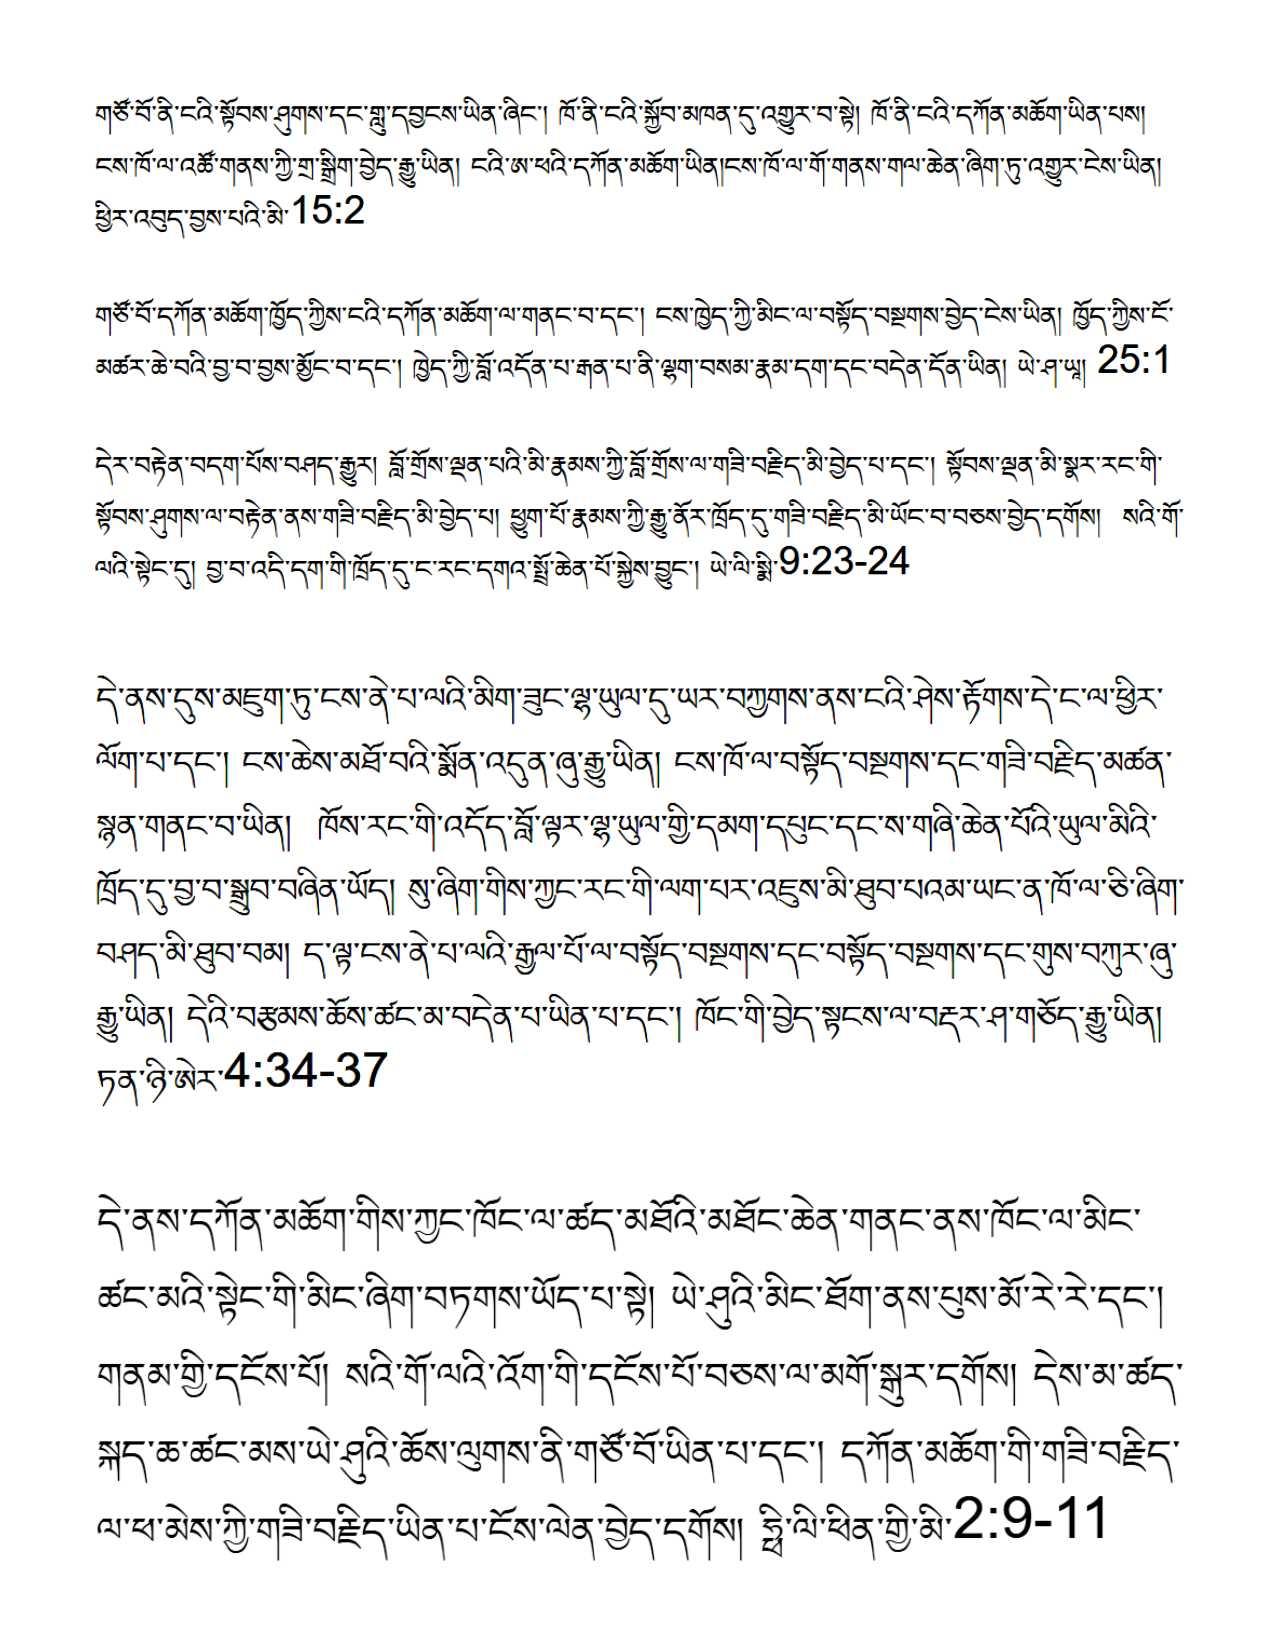 གཙོ་བོ་ནི་ངའི་སྟོབས་ཤུགས་དང་གླུ་དབྱངས་ཡིན་ཞིང་། ཁོ་ནི་ངའི་སྐྱོབ་མཁན་དུ་འགྱུར་བ་སྟེ། ཁོ་ནི་ངའི་དཀོན་མཆོག་ཡིན་པས།
ངས་ཁོ་ལ་འཚོ་གནས་ཀྱི་གྲ་སྒྲིག་བྱེད་རྒྱུ་ཡིན། ངའི་ཨ་ཕའི་དཀོན་མཆོག་ཡིན།ངས་ཁོ་ལ་གོ་གནས་གལ་ཆེན་ཞིག་ཏུ་འགྱུར་ངེས་ཡིན།
ཕྱིར་འབུད་བྱས་པའི་མི་15:2
གཙོ་བོ་དཀོན་མཆོག་ཁྱོད་ཀྱིས་ངའི་དཀོན་མཆོག་ལ་གནང་བ་དང་། ངས་ཁྱེད་ཀྱི་མིང་ལ་བསྟོད་བསྔགས་བྱེད་ངེས་ཡིན། ཁྱོད་ཀྱིས་ངོ་
མཚར་ཆེ་བའི་བྱ་བ་བྱས་མྱོང་བ་དང་། ཁྱེད་ཀྱི་བློ་འདོན་པ་རྒན་པ་ནི་ལྷག་བསམ་རྣམ་དག་དང་བདེན་དོན་ཡིན། ཡེ་ཤ་ཡཱ། 25:1
དེར་བརྟེན་བདག་པོས་བཤད་རྒྱུར། བློ་གྲོས་ལྡན་པའི་མི་རྣམས་ཀྱི་བློ་གྲོས་ལ་གཟི་བརྗིད་མི་བྱེད་པ་དང་། སྟོབས་ལྡན་མི་སྣར་རང་གི་
སྟོབས་ཤུགས་ལ་བརྟེན་ནས་གཟི་བརྗིད་མི་བྱེད་པ། ཕྱུག་པོ་རྣམས་ཀྱི་རྒྱུ་ནོར་ཁྲོད་དུ་གཟི་བརྗིད་མི་ཡོང་བ་བཅས་བྱེད་དགོས།  སའི་གོ་
ལའི་སྟེང་དུ། བྱ་བ་འདི་དག་གི་ཁྲོད་དུ་ང་རང་དགའ་སྤྲོ་ཆེན་པོ་སྐྱེས་བྱུང་། ཡེ་ལི་སྨི་9:23-24
དེ་ནས་དུས་མཇུག་ཏུ་ངས་ནེ་པ་ལའི་མིག་ཟུང་ལྷ་ཡུལ་དུ་ཡར་བཀྱགས་ནས་ངའི་ཤེས་རྟོགས་དེ་ང་ལ་ཕྱིར་
ལོག་པ་དང་། ངས་ཆེས་མཐོ་བའི་སྨོན་འདུན་ཞུ་རྒྱུ་ཡིན། ངས་ཁོ་ལ་བསྟོད་བསྔགས་དང་གཟི་བརྗིད་མཚན་
སྙན་གནང་བ་ཡིན།  ཁོས་རང་གི་འདོད་བློ་ལྟར་ལྷ་ཡུལ་གྱི་དམག་དཔུང་དང་ས་གཞི་ཆེན་པོའི་ཡུལ་མིའི་
ཁྲོད་དུ་བྱ་བ་སྒྲུབ་བཞིན་ཡོད། སུ་ཞིག་གིས་ཀྱང་རང་གི་ལག་པར་འཇུས་མི་ཐུབ་པའམ་ཡང་ན་ཁོ་ལ་ཅི་ཞིག་
བཤད་མི་ཐུབ་བམ། ད་ལྟ་ངས་ནེ་པ་ལའི་རྒྱལ་པོ་ལ་བསྟོད་བསྔགས་དང་བསྟོད་བསྔགས་དང་གུས་བཀུར་ཞུ་
རྒྱུ་ཡིན། དེའི་བརྩམས་ཆོས་ཚང་མ་བདེན་པ་ཡིན་པ་དང་། ཁོང་གི་བྱེད་སྟངས་ལ་བརྡར་ཤ་གཅོད་རྒྱུ་ཡིན།
ཏན་ཉི་ཨེར་4:34-37
དེ་ནས་དཀོན་མཆོག་གིས་ཀྱང་ཁོང་ལ་ཚད་མཐོའི་མཐོང་ཆེན་གནང་ནས་ཁོང་ལ་མིང་
ཚང་མའི་སྟེང་གི་མིང་ཞིག་བཏགས་ཡོད་པ་སྟེ། ཡེ་ཤུའི་མིང་ཐོག་ནས་པུས་མོ་རེ་རེ་དང་།
གནམ་གྱི་དངོས་པོ། སའི་གོ་ལའི་འོག་གི་དངོས་པོ་བཅས་ལ་མགོ་སྒུར་དགོས། དེས་མ་ཚད་
སྐད་ཆ་ཚང་མས་ཡེ་ཤུའི་ཆོས་ལུགས་ནི་གཙོ་བོ་ཡིན་པ་དང་། དཀོན་མཆོག་གི་གཟི་བརྗིད་
ལ་ཕ་མེས་ཀྱི་གཟི་བརྗིད་ཡིན་པ་ངོས་ལེན་བྱེད་དགོས། ཧྥི་ལི་ཕིན་གྱི་མི་2:9-11